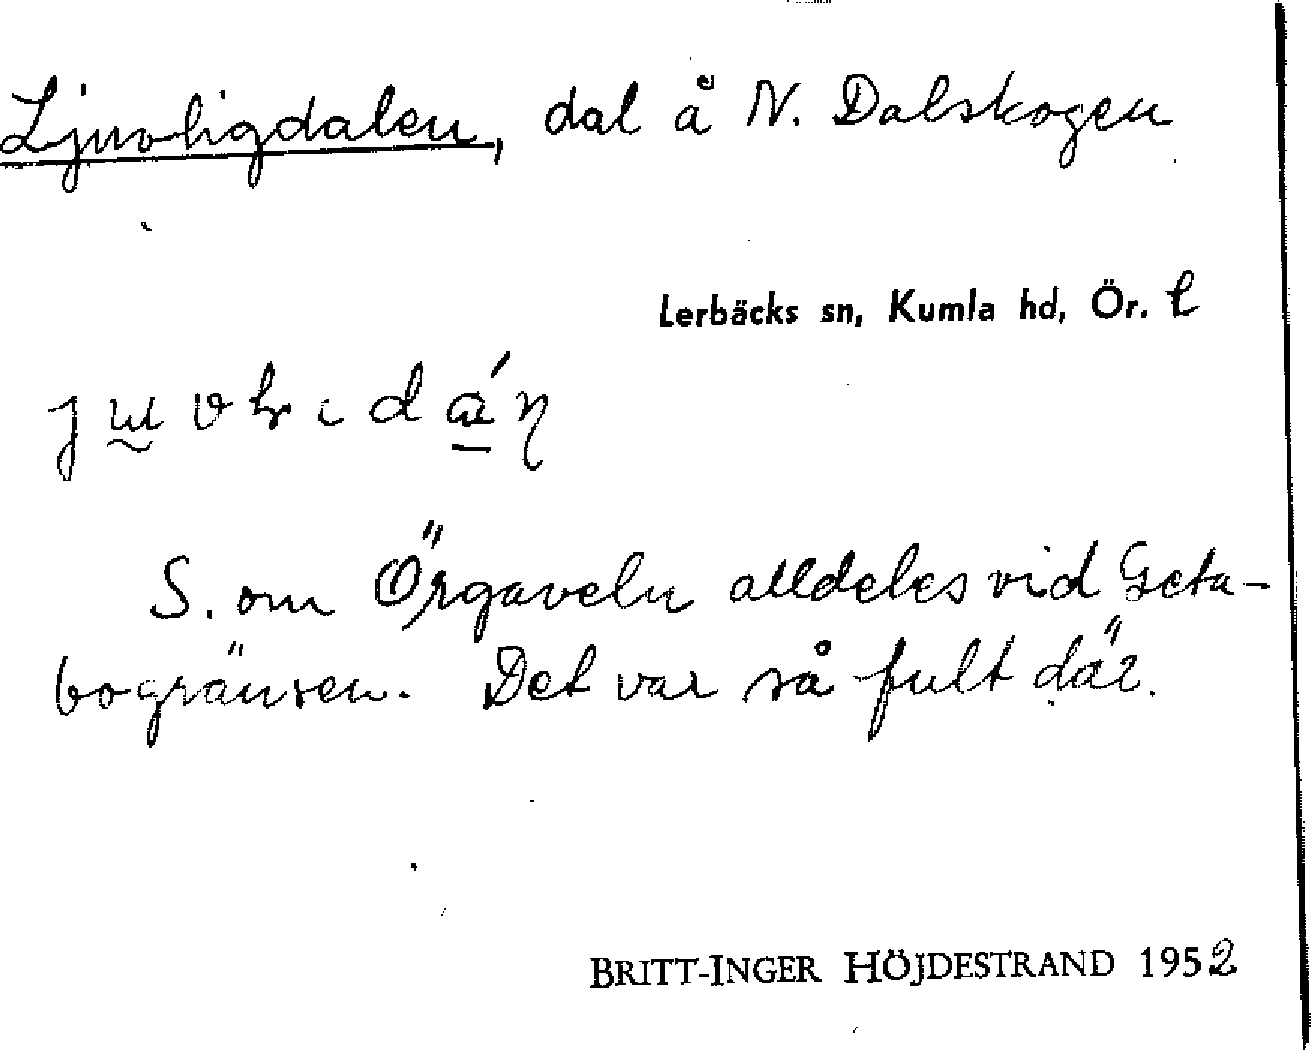 Ljuvligdalen, dal å N. Dalskogen
Lerbäcks sn, Kumla hd, Ör. l
S. om Örgaveln alldeles vid Geta-
bogränsen. Det var så fult där.
BRITT-INGER HÖJDESTRAND 1952